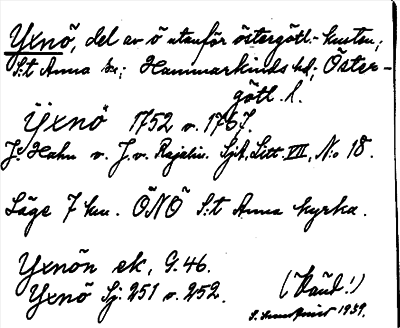 Yxnö, del av ö utanför östergötl.-kusten;
S:t Anna sn; Hammarkinds hd; Öster-
götl. l.
Ÿxnö 1752 o. 1767.
J. Hahn o. J. v. Rajalin. SjK, Litt. VII, N:o 18.
Läge 7 km. ÖNÖ S:t Anna kyrka.
Yxnön ek, G. 46.
Yxnö Sj. 251 o. 252.
1939.